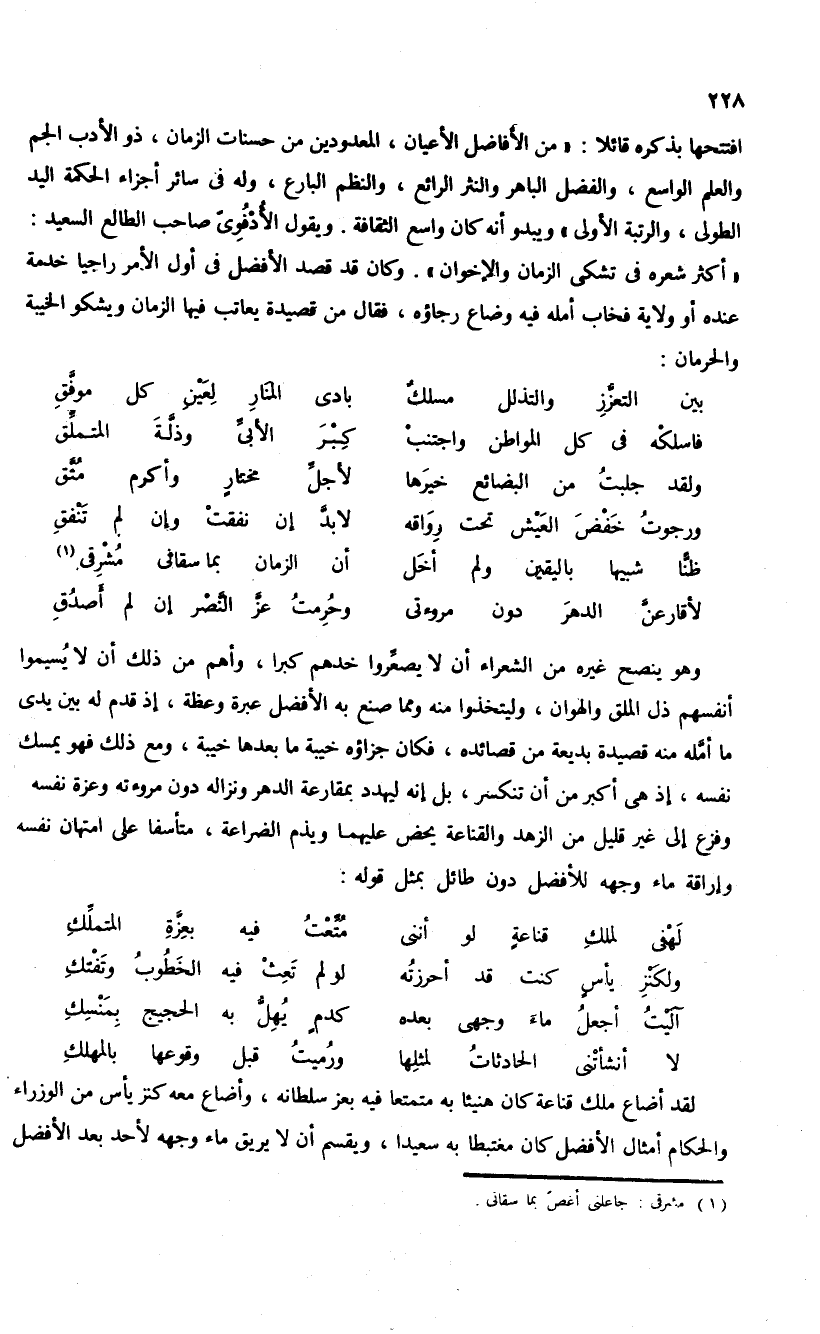 ٢٢٨
افتتحها بذكره قائلا : « من الأفاضل الأعيان ، المعدودين من حسنات الزمان ، ذو الأدب الجم
والعلم الواسع ، والفضل الباهر والنثر الرائع ، والنظم البارع ، وله فى سائر أجزاء الحكمة اليد
الطولى ، والرتبة الأولى » ويبدو أنه كان واسع الثقافة . ويقول الأُدْفُوِىّ صاحب الطالع السعيد :
« أكثر شعره فى تشكى الزمان والإخوان » . وكان قد قصد الأفضل فى أول الأمر راجيا خدمة
عنده أو ولاية فخاب أمله فيه وضاع رجاؤه ، فقال من قصيدة يعاتب فيها الزمان ويشكو الخيبة
والحرمان :
بين التعزَّزِ والتذلل مسلكٌ بادى المَنَارِ لِعَيْنِ كل موفَّقِ
فاسلكْه فى كل المواطن واجتنبْ كِبْرَ الأبىِّ وذلَّةَ المتملِّق
ولقد جلبتُ من البضائع خيرَها لأجلِّ مختارٍ وأكرم مُتَّق
ورجوتُ خَفْضَ العَيْش تحت رِوَاقه لابدَّ إن نفقتْ وإن لم تَنْفقِ
ظنًّا شبيها باليقين ولم أخَل أن الزمان بما سقانى مُشْرِقى (١)
لأقارعنَّ الدهرَ دون مروءتى وحُرِمتُ عزَّ النَّصْر إن لم أَصدُقِ
وهو ينصح غيره من الشعراء أن لا يصعِّروا خدهم كبرا ، وأهم من ذلك أن لا يُسيموا
أنفسهم ذل الملق والهوان ، وليتخذوا منه ومما صنع به الأفضل عبرة وعظة ، إذ قدم له بين يدى
ما أمَّله منه قصيدة بديعة من قصائده ، فكان جزاؤه خيبة ما بعدها خيبة ، ومع ذلك فهو يمسك
نفسه ، إذ هى أكبر من أن تنكسر ، بل إنه ليهدد بمقارعة الدهر ونزاله دون مروءته وعزة نفسه
وفزع إلى غير قليل من الزهد والقناعة يحض عليهما ويذم الضراعة ، متأسفا على امتهان نفسه
وإراقة ماء وجهه للأفضل دون طائل بمثل قوله :
لَهْفى لملكِ قناعةٍ لو أننى مُتِّعْتُ فيه بعِزَّةِ المتملِّكِ
ولكَنْزِ يأسٍ كنت قد أحرزتُه لو لم تَعِثْ فيه الخطُوبُ وتَفْتكِ
آلَيْتُ أجعلُ ماءَ وجهى بعده كدمٍ يُهِلُّ به الحجيج بِمَنْسِكِ
لا أنشأتْنى الحادثاتُ لمثلِها ورُميتُ قبل وقوعها بالمهلكِ
لقد أضاع ملك قناعة كان هنيئا به متمتعا فيه بعز سلطانه ، وأضاع معه كنز يأس من الوزراء
والحكام أمثال الأفضل كان مغتبطا به سعيدا ، ويقسم أن لا يريق ماء وجهه لأحد بعد الأفضل
(١) مشرقى : جاعلنى أغصّ بما سقانى .